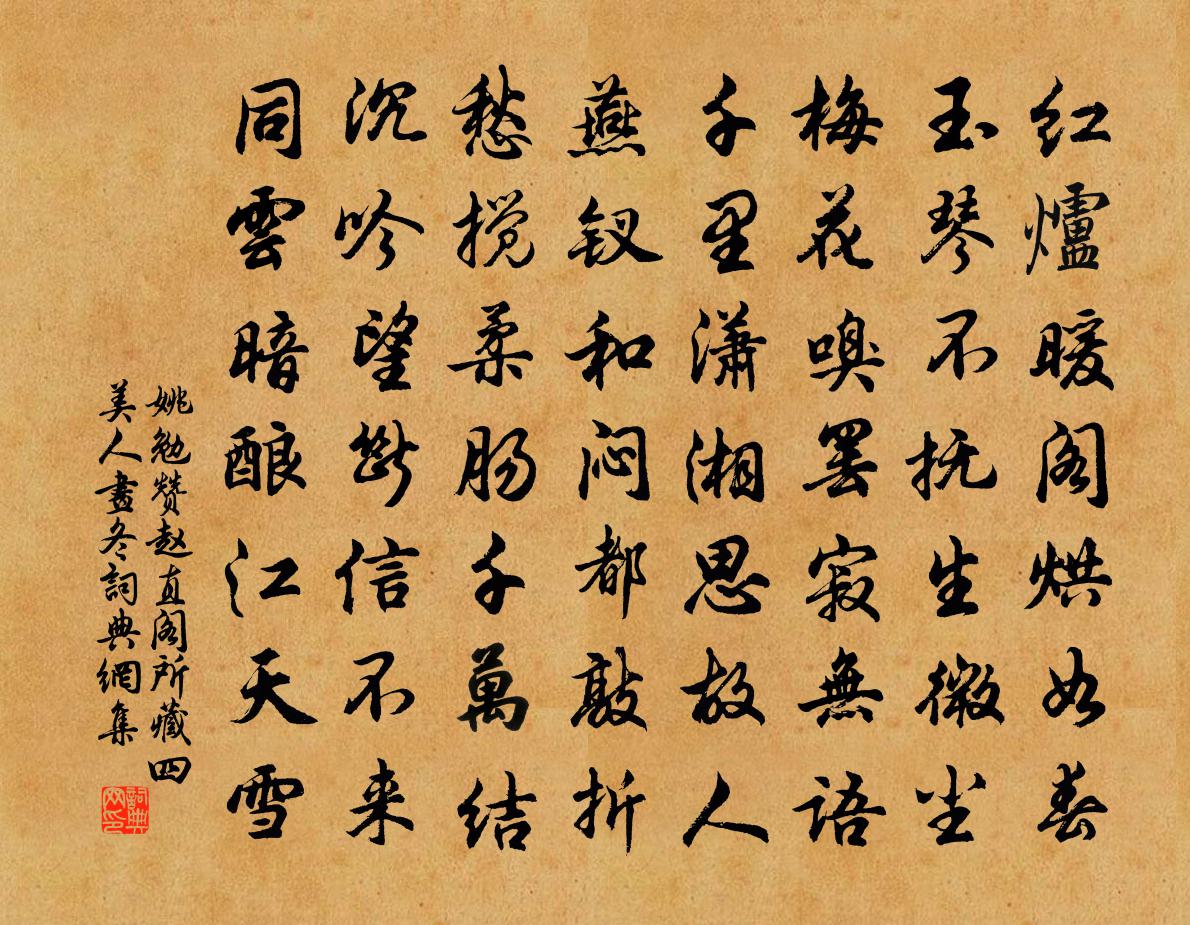 红爐暖阁烘如春
玉琴不抚生微尘
梅花嗅罢寂無语
千里潇湘思故人
燕钗和闷都敲折
愁搅柔肠千萬结
沉吟望断信不来
同雲暗酿江天雪
姚勉赞赵直阁所藏四
美人畫冬詞典網集
詞典
网印